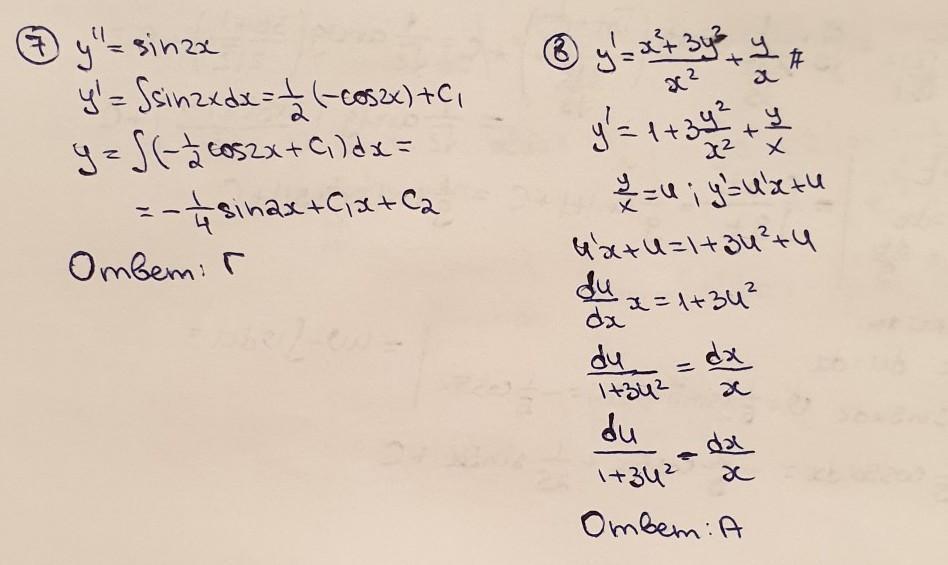 ⑦ y'' = sin2x
y' = ∫sin2xdx = 1/2 (-cos2x) + C₁
y = ∫(-1/2 cos2x + C₁)dx =
= -1/4 sin2x + C₁x + C₂
Ответ: Г
⑧ y' = (x² + 3y²)/x² + y/x #
y' = 1 + 3 y²/x² + y/x
y/x = u ; y' = u'x + u
u'x + u = 1 + 3u² + u
du/dx x = 1 + 3u²
du/(1+3u²) = dx/x
du/(1+3u²) - dx/x
Ответ: А